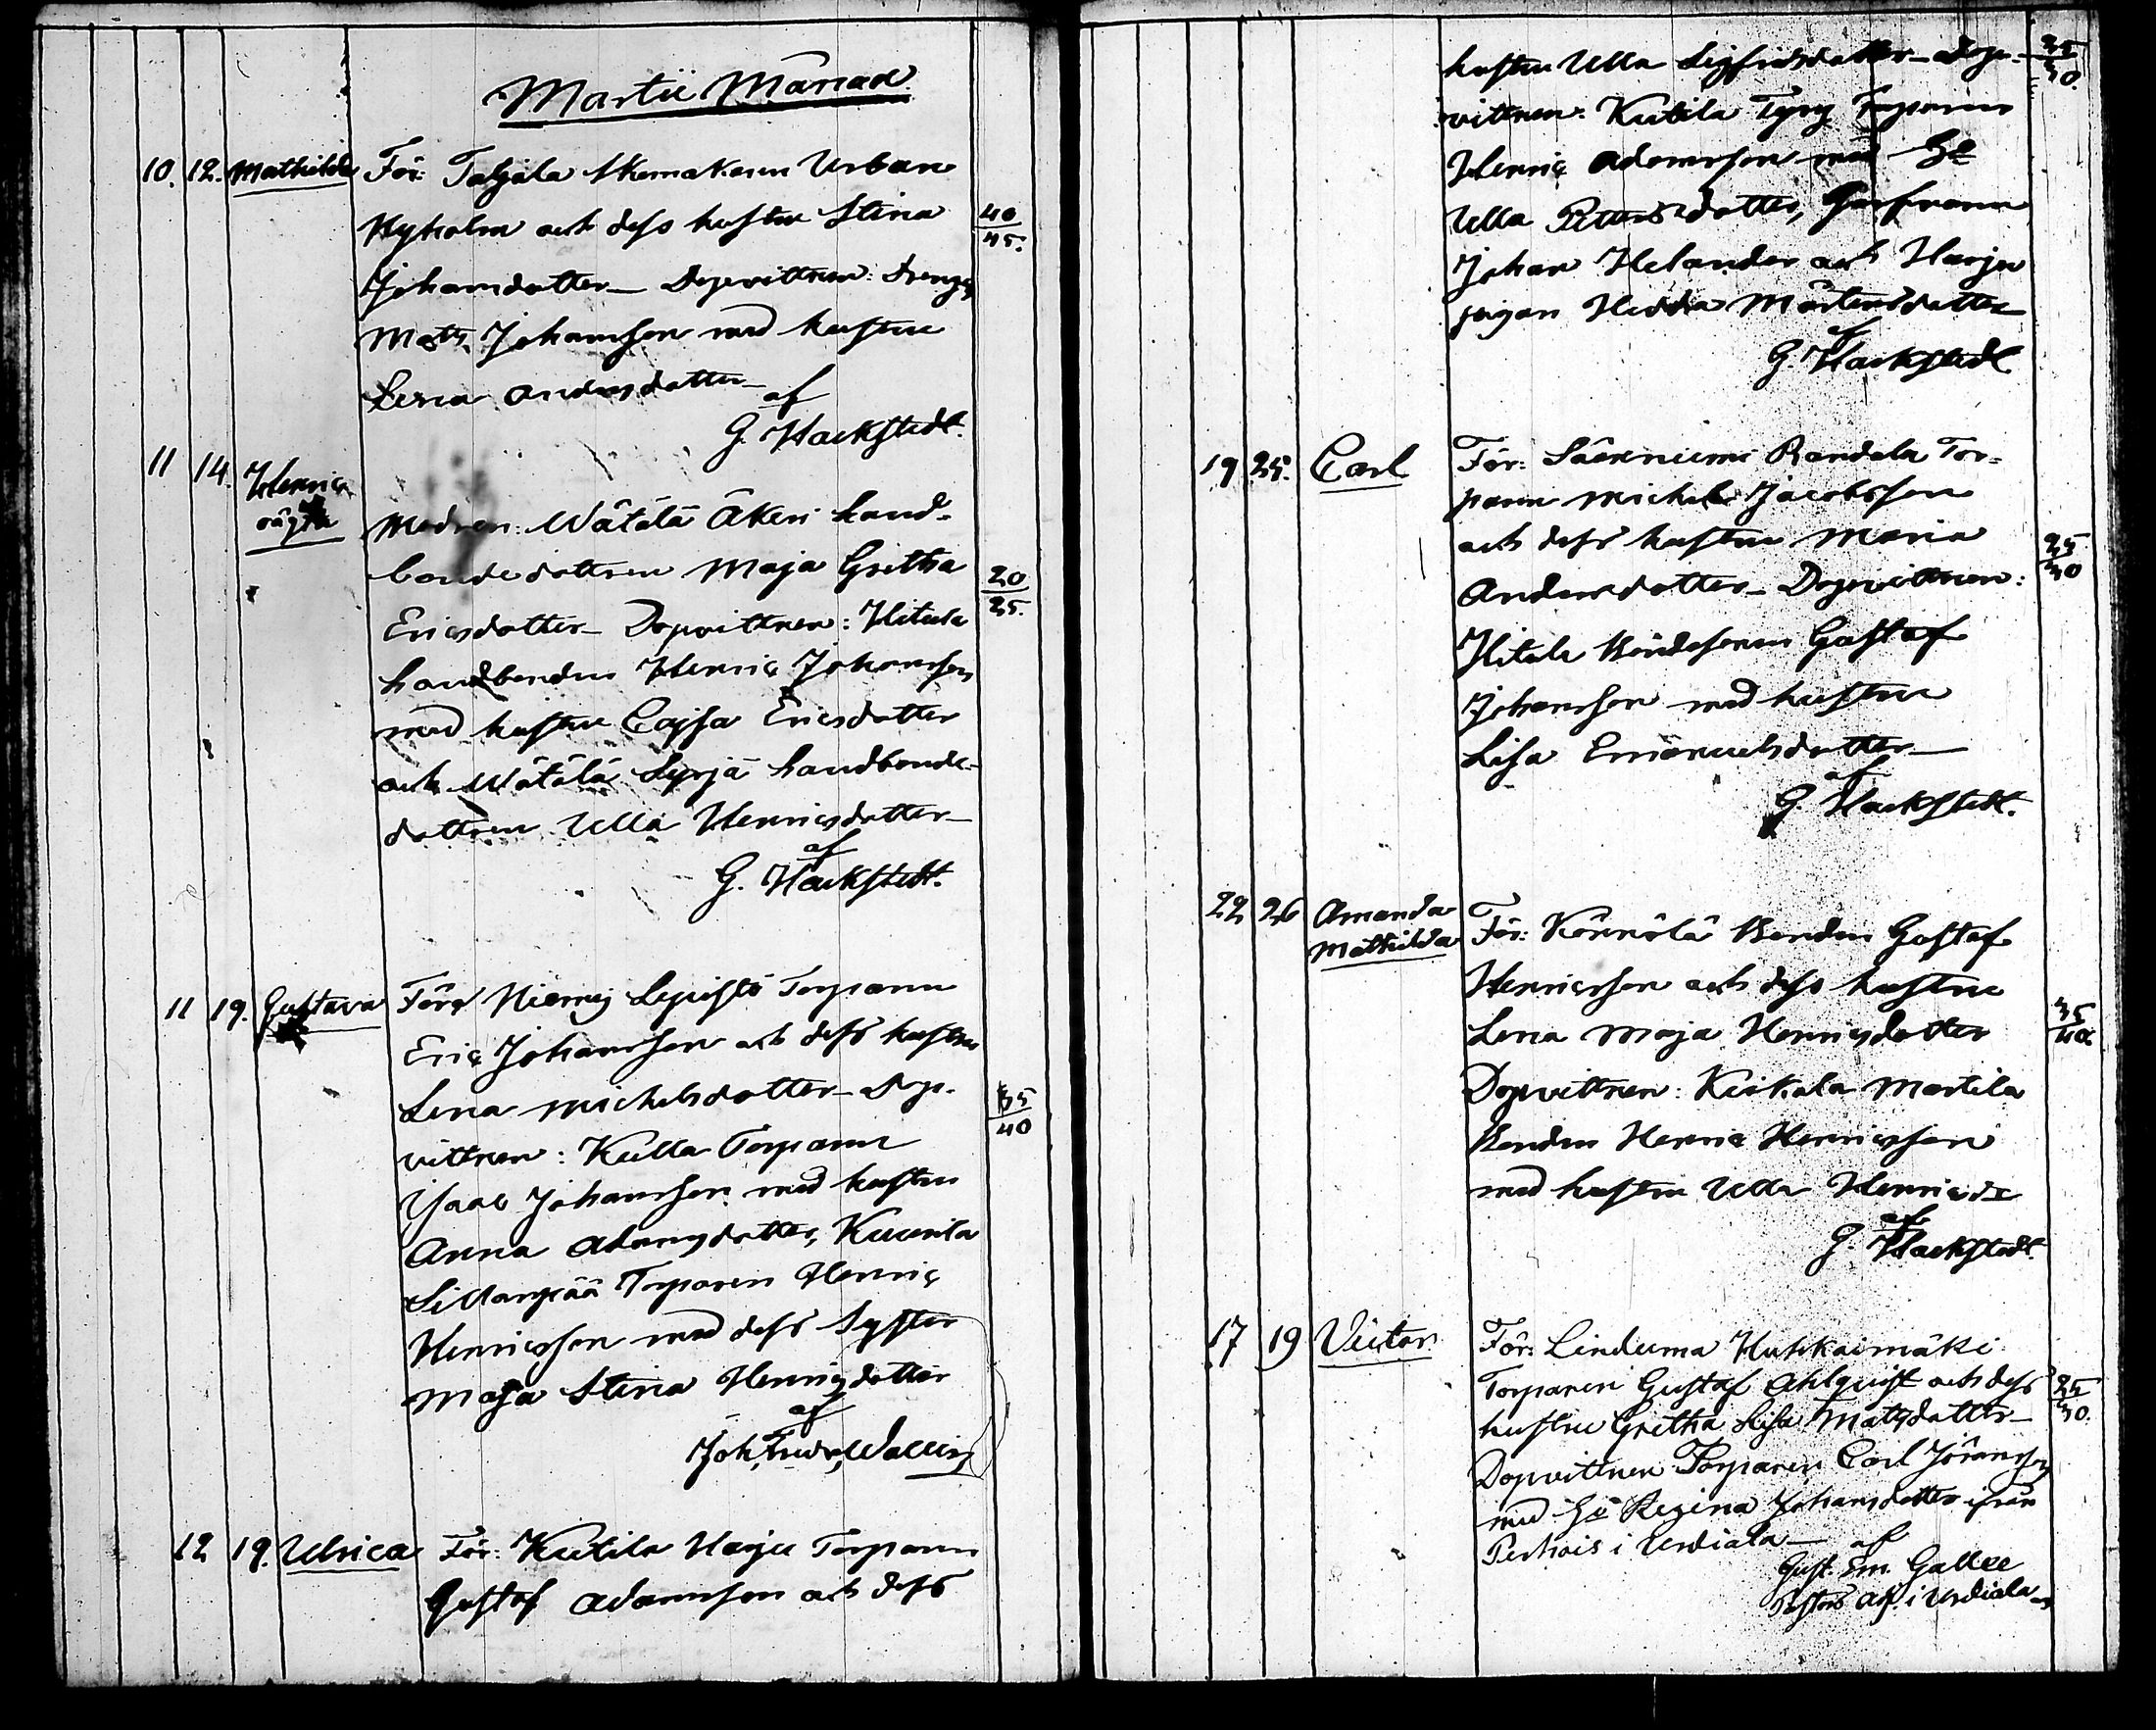 Martii Månad
10. 12. Mathilda För: Taljala Skomakaren Urban
Nyholm och dess hustru Stina 40/45.
Johansdotter_ Dopvittnen: Drengen
Matts Johansson med hustru
Lena Andersdotter_
af
G. Hackstedt.
11 14. Henric
oägta
Modren: Wätälä Åkeri Land-
bondedottren Maja Gretha 20/25.
Ericsdotter_ Dopvittnen: Hitula
Landbonden Henric Johansson
med hustru Cajsa Ericsdotter
och Wätälä Syrjä Landbonde-
dottren Ulla Henricsdotter_
af
G. Hackstedt.
11 19. Gustava För: Niemij Lepistö Torparen
Eric Johansson och dess hustru
Lena Michelsdotter_ Dop- 35/40
vittnen: Kulla Torparen
Isaac Johansson med hustru
Anna Adamsdotter, Kuurila
Sillanpää Torparen Henric
Henricsson med dess Syster
Maja Stina Henricsdotter
af
Joh. Fredr. Wallin
12 19. Ulrica För: Kutila Harju Torparen
Gustaf Adamsson och dess
hustru Ulla Sigfridsdotter_ Dop- 25/30.
vittnen: Kutila Torparen
Henric Adamsson med H:u
Ulla Pettersdotter, Garfvaren
Johan Helander och Harju
pigan Hedda Mårtensdotter_
af
G. Hackstedt
19 25. Carl För: Sääxniemi Randala Tor-
paren Michel Jacobsson
och dess hustru Maria 25/30
Andersdotter_ Dopvittnen:
Hitula Bondesonen Gustaf
Johansson med hustru
Lisa Emanuelsdotter_
af
G. Hackstedt.
22 26 Amanda
Mathilda
För: Könnölä Bonden Gustaf
Henricsson och dess hustru
Lena Maja Henricsdotter 35/40.
Dopvittnen: Keikala Martila
Bonden Henric Henricsson
med hustru Ulla Henricsd:r
af
G. Hackstedt.
17 19 Victor För: Linduma Huhkaimäki
Torparen Gustaf Ahlqvist och dess 25/30.
hustru Gretha Lisa Matsdotter_
Dopvittnen: Torparen Carl Jöransson
med H:u Regina Johansdotter ifrån
Perhois i Urdiala_
af
Gust. Em. Gallee
Pastors Adj. i Urdiala